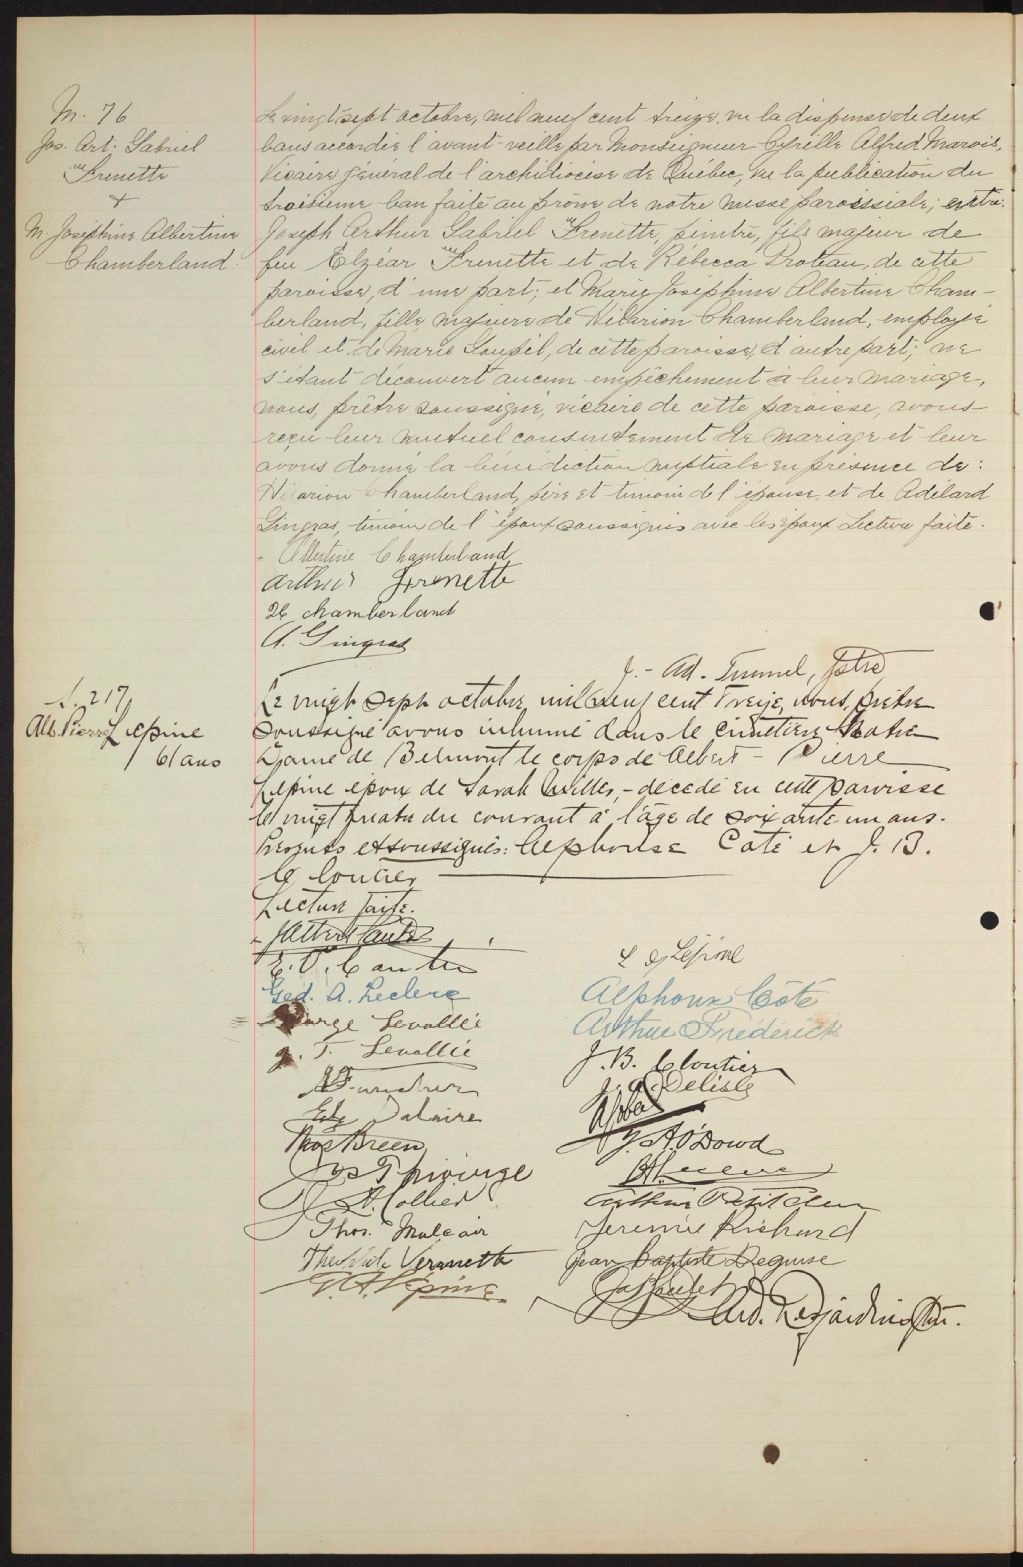 M. 76
Jos. Art. Gabriel
Frenette
+
M. Josephine Albertine
Chamberland.
Le vingt sept octobre, mil neuf cent treize, vu la dispense de deux
bans accordée l'avant-veille par Monseigneur Cyrille Alfred Marois,
Vicaire général de l'archidiocèse de Québec, vu la publication du
troisième ban faite au prône de notre messe paroissiale; entre
Joseph Arthur Gabriel Frenette, peintre, fils majeur de
feu Elzéar Frenette et de Rébecca Proteau, de cette
paroisse, d'une part; et Marie Josephine Albertine Cham-
berland, fille majeure de Hilarion Chamberland, employé
civil et de Marie Goupil, de cette paroisse, d'autre part; ne
s'étant découvert aucun empêchement à leur mariage,
nous, prêtre soussigné, vicaire de cette paroisse, avons
reçu leur mutuel consentement de mariage et leur
avons donné la bénédiction nuptiale en présence de:
Hilarion Chamberland, père et témoin de l'épouse, et de Adélard
Gingras, témoin de l'époux soussignés avec les époux Lecture faite.
Albertine Chamberland
Arthur Frenette
Chamberland
A. Gingras
J.-Ad. , Ptre
S. 217
Alb. Pierre Lepine
61 ans
Le vingt sept octobre, mil neuf cent treize, nous, prêtre
soussigné avons inhumé dans le cimetière Notre
Dame de Belmont le corps de Albert-Pierre
Lepine époux de Sarah , décédé en cette paroisse
le vingt quatre du courant à l'âge de soixante un ans.
Présents et soussignés: Alphonse Coté et J. B.
Cloutier
Lecture faite.
E. V. Cantin
Ged. A. Leclerc
George Levallée
J. T. Levallée
Dalaire
Thos Breen
Jos Thivierge
J. A. Collier
Thos. Mulcair
Vermette
G. A. Lépine
Lépine
Alphonse Côté
Arthur Frédérick
J. B. Cloutier
Delisle
J. A. O'Dowd
Arthur
Jeremie Richard
Jean Baptiste Deguise
Ard. Desjardins Ptr.